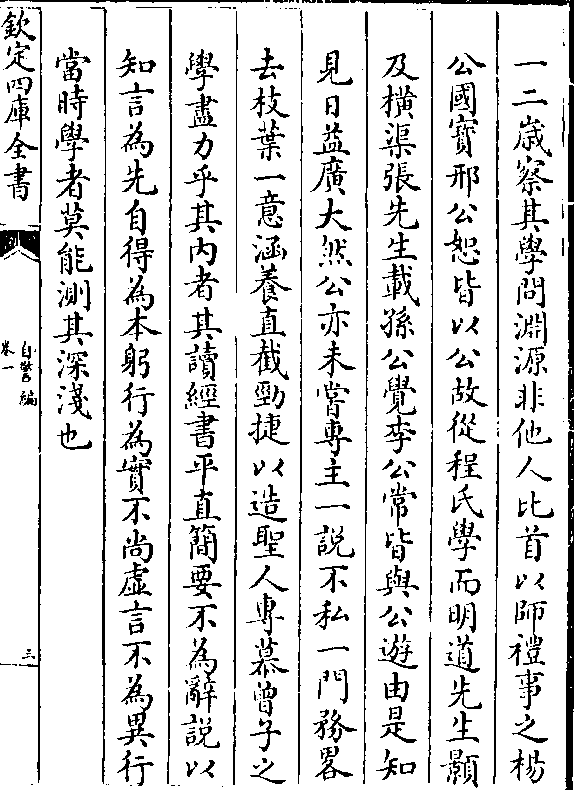 一二歳察其學問淵源非他人比首以師禮事之楊
公國寶邢公恕皆以公故從程氏學而明道先生顥
及橫渠張先生載孫公覺李公常皆與公遊由是知
見日益廣大然公亦未嘗專主一説不私一門務畧
去枝葉一意涵養直截勁捷以造聖人專慕曾子之
學盡力乎其内者其讀經書平直簡要不為辭説以
知言為先自得為本躬行為實不尚虚言不為異行
當時學者莫能測其深淺也
欽定四庫全書
自警編
卷一
三